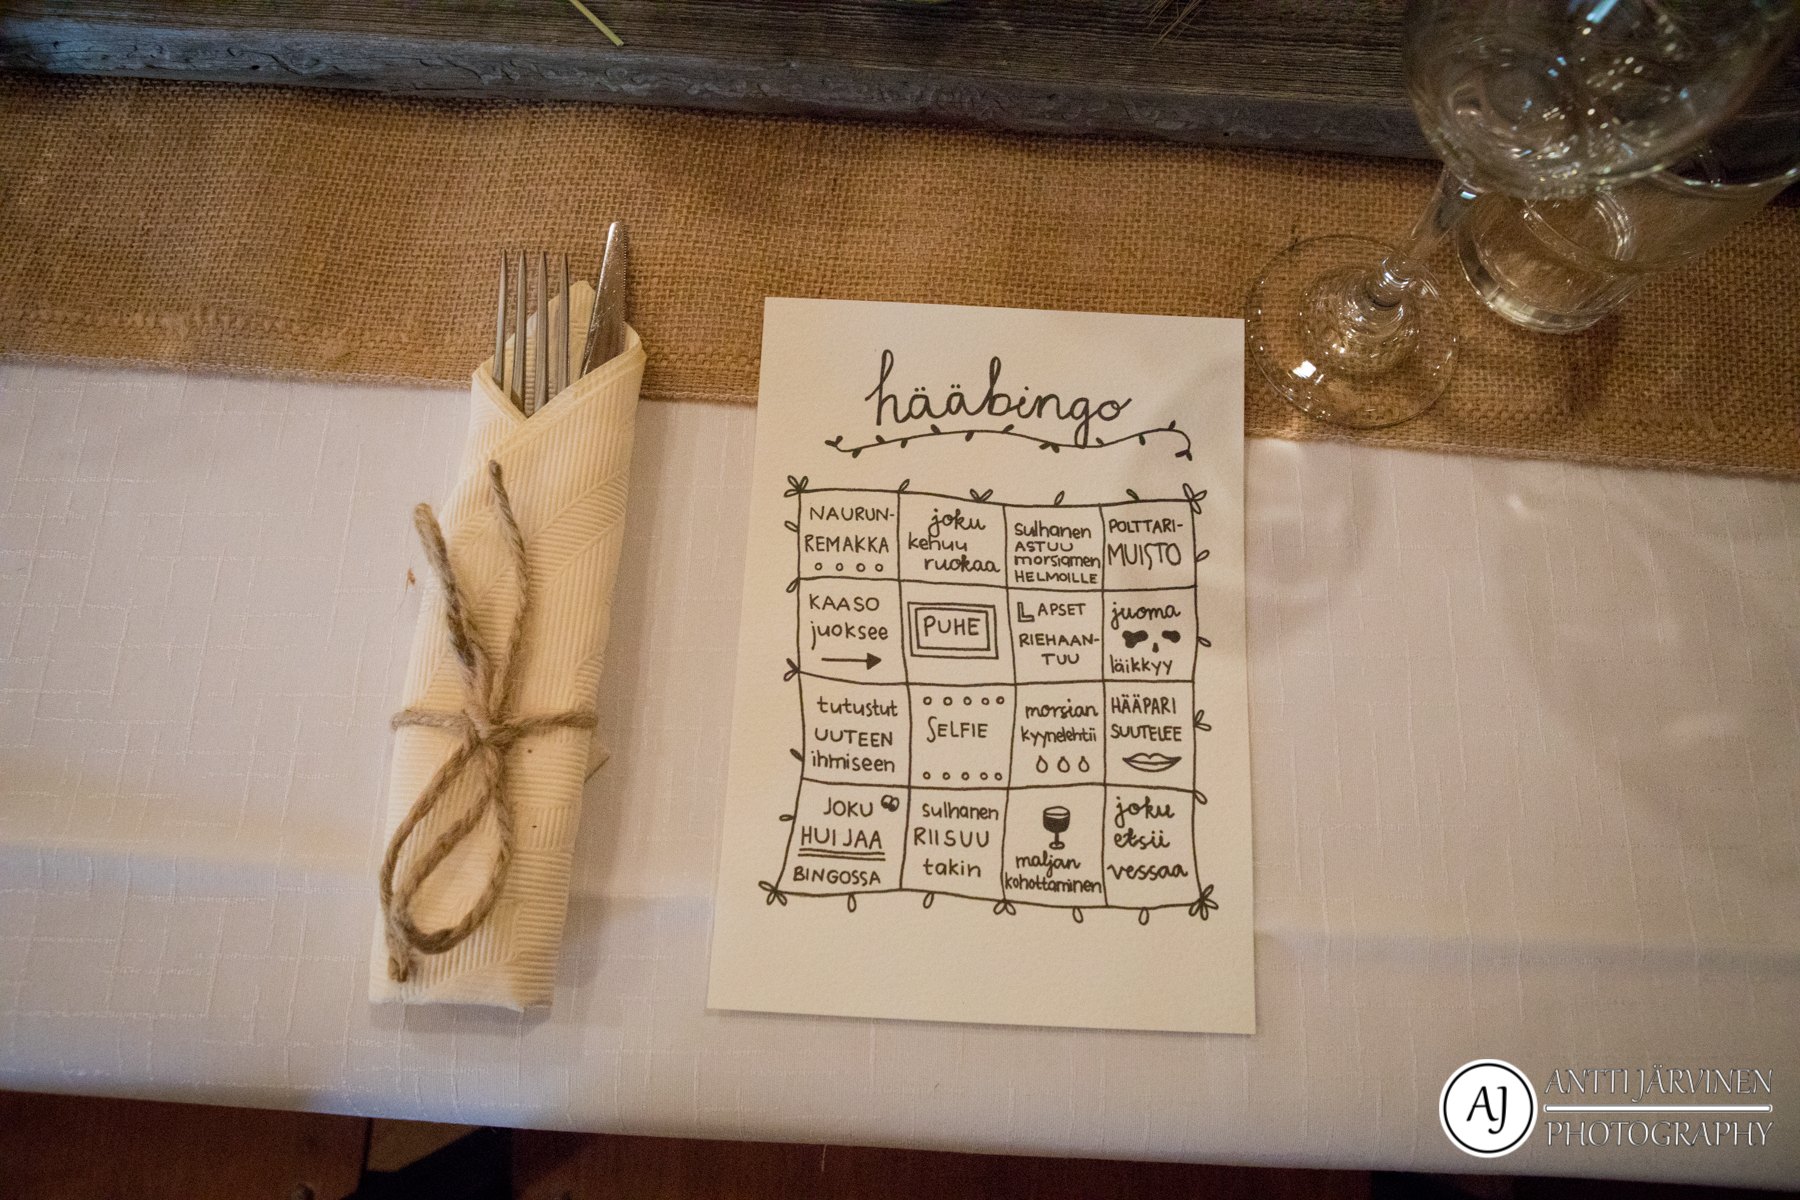 hääbingo
NAURUN-
REMAKKA
joku
kehuu
ruokaa
sulhanen
ASTUU
morsiamen
HELMOILLE
POLTTARI-
MUISTO
KAASO
juoksee
PUHE
LAPSET
RIEHAAN-
TUU
juoma
läikkyy
tutustut
UUTEEN
ihmiseen
SELFIE
morsian
kyynelehtii
HÄÄPARI
SUUTELEE
JOKU
HUIJAA
BINGOSSA
sulhanen
RIISUU
takin
maljan
kohottaminen
joku
etsii
vessaa
AJ
ANTTI JÄRVINEN
PHOTOGRAPHY